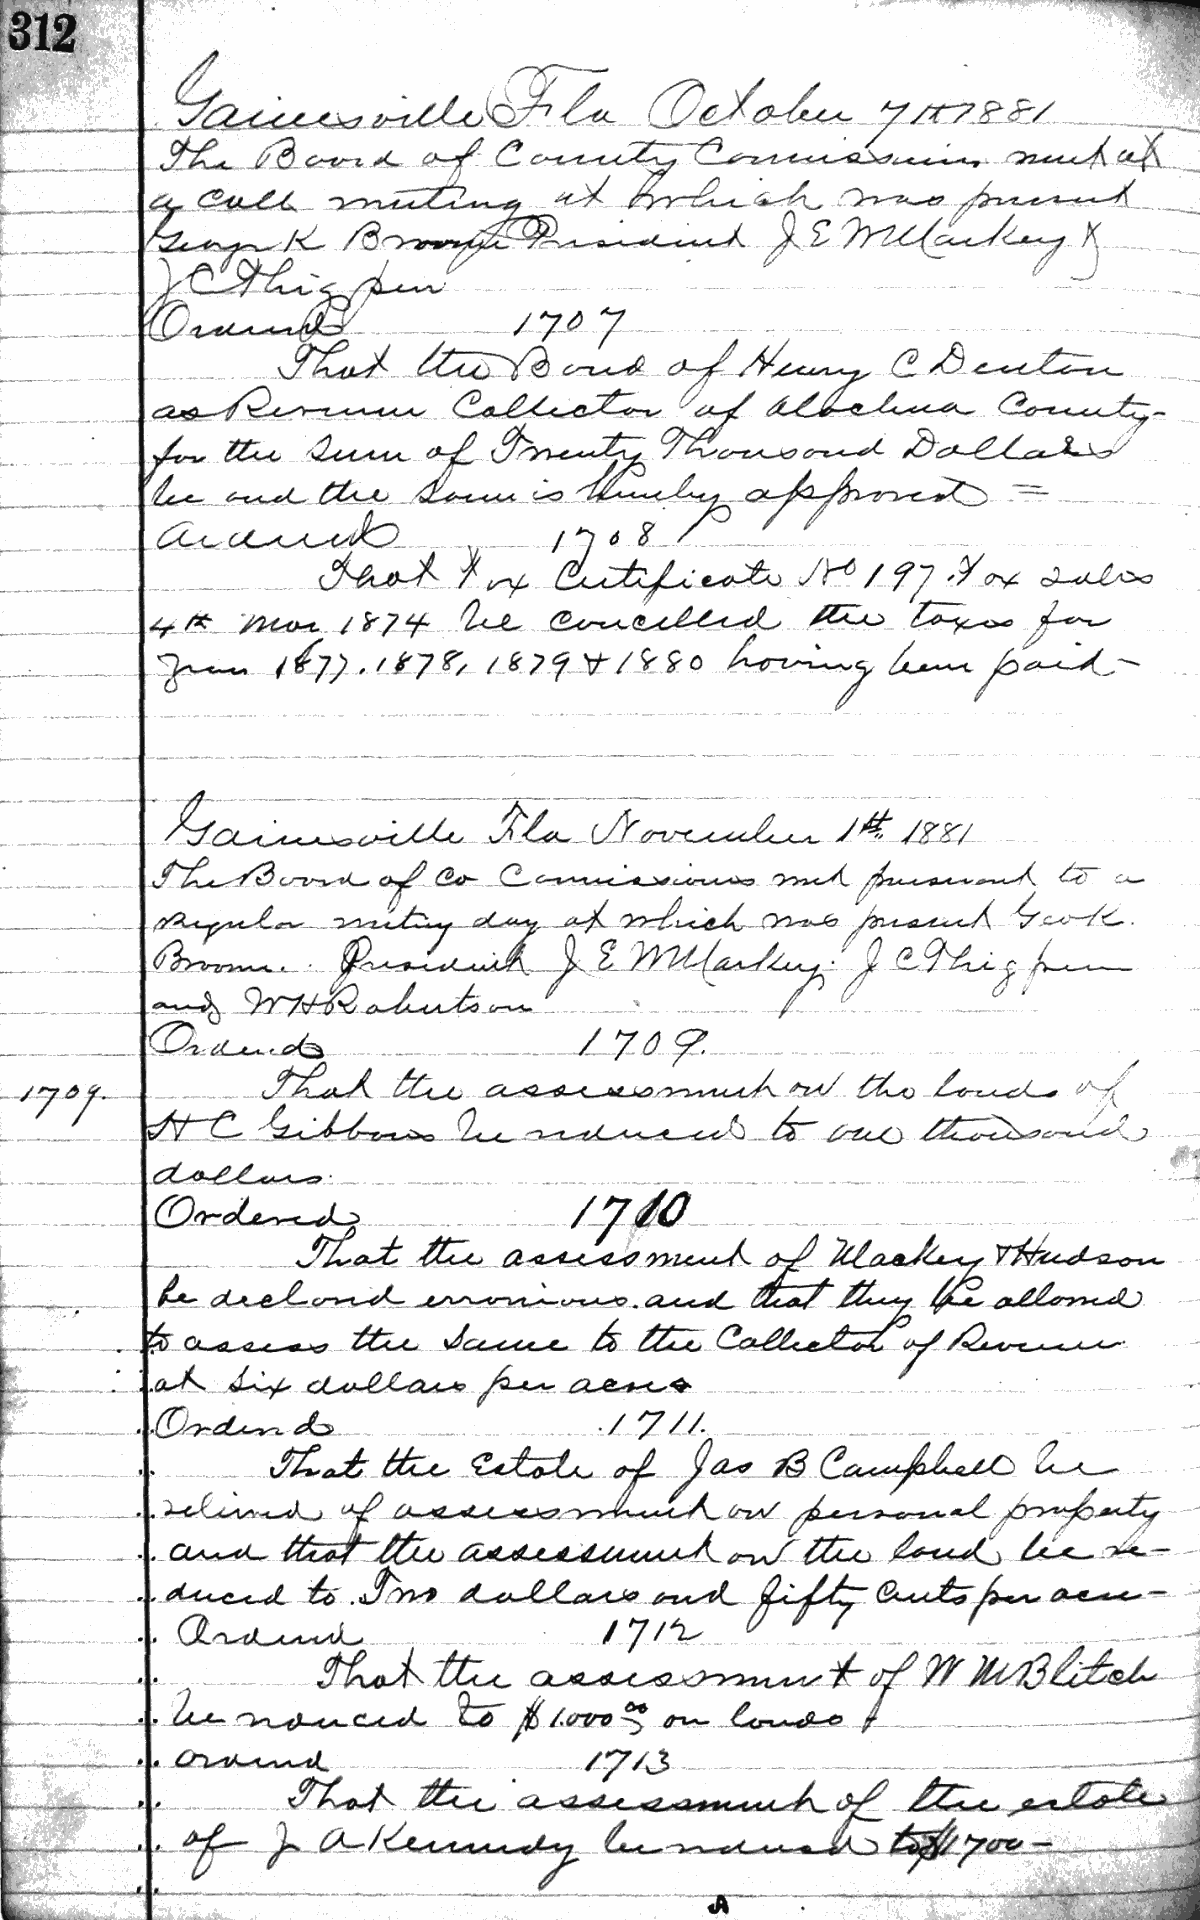 312
Gainesville Fla October 7th 1881
The Board of County Commissioners met at
a call meeting at which was present
George K Broome President J E W Mackey &
J C Thigpen
Ordered 1707
That the Bond of Henry C Denton
as Revenue Collector of Alachua County-
for the Sum of Twenty Thousand Dollars
be and the same is hereby approved =
Ordered 1708
That Tax Certificate No 197. Tax sales
4th 1874 be cancelled the taxes for
years 1877. 1878, 1879 & 1880 having been paid-
Gainesville Fla November 1st 1881
The Board of Co Commissioners met pursuant to a
Regular meeting day at which was present Geo K.
Broome. President J E W Mackey. J C Thigpen
and W H Robertson
Ordered 1709.
1709. That the assessment on the lands of
H C Gibbons be reduced to one thousand
dollars.
Ordered 1710
That the assessment of Mackey & Hudson
be declared erronious. and that they be allowed
to assess the same to the Collector of Revenue
at six dollars per acres
Ordered 1711.
That the Estate of Jas B Campbell be
relieved of assessment on personal property
and that the assessment on the land be re-
duced to Two dollars and fifty cents per acre-
Ordered 1712
That the assessment of W M Blitch
be reduced to $1.000 00 on lands
Ordered 1713
That the assessment of the estate
of J A Kennedy be reduced to $1700-